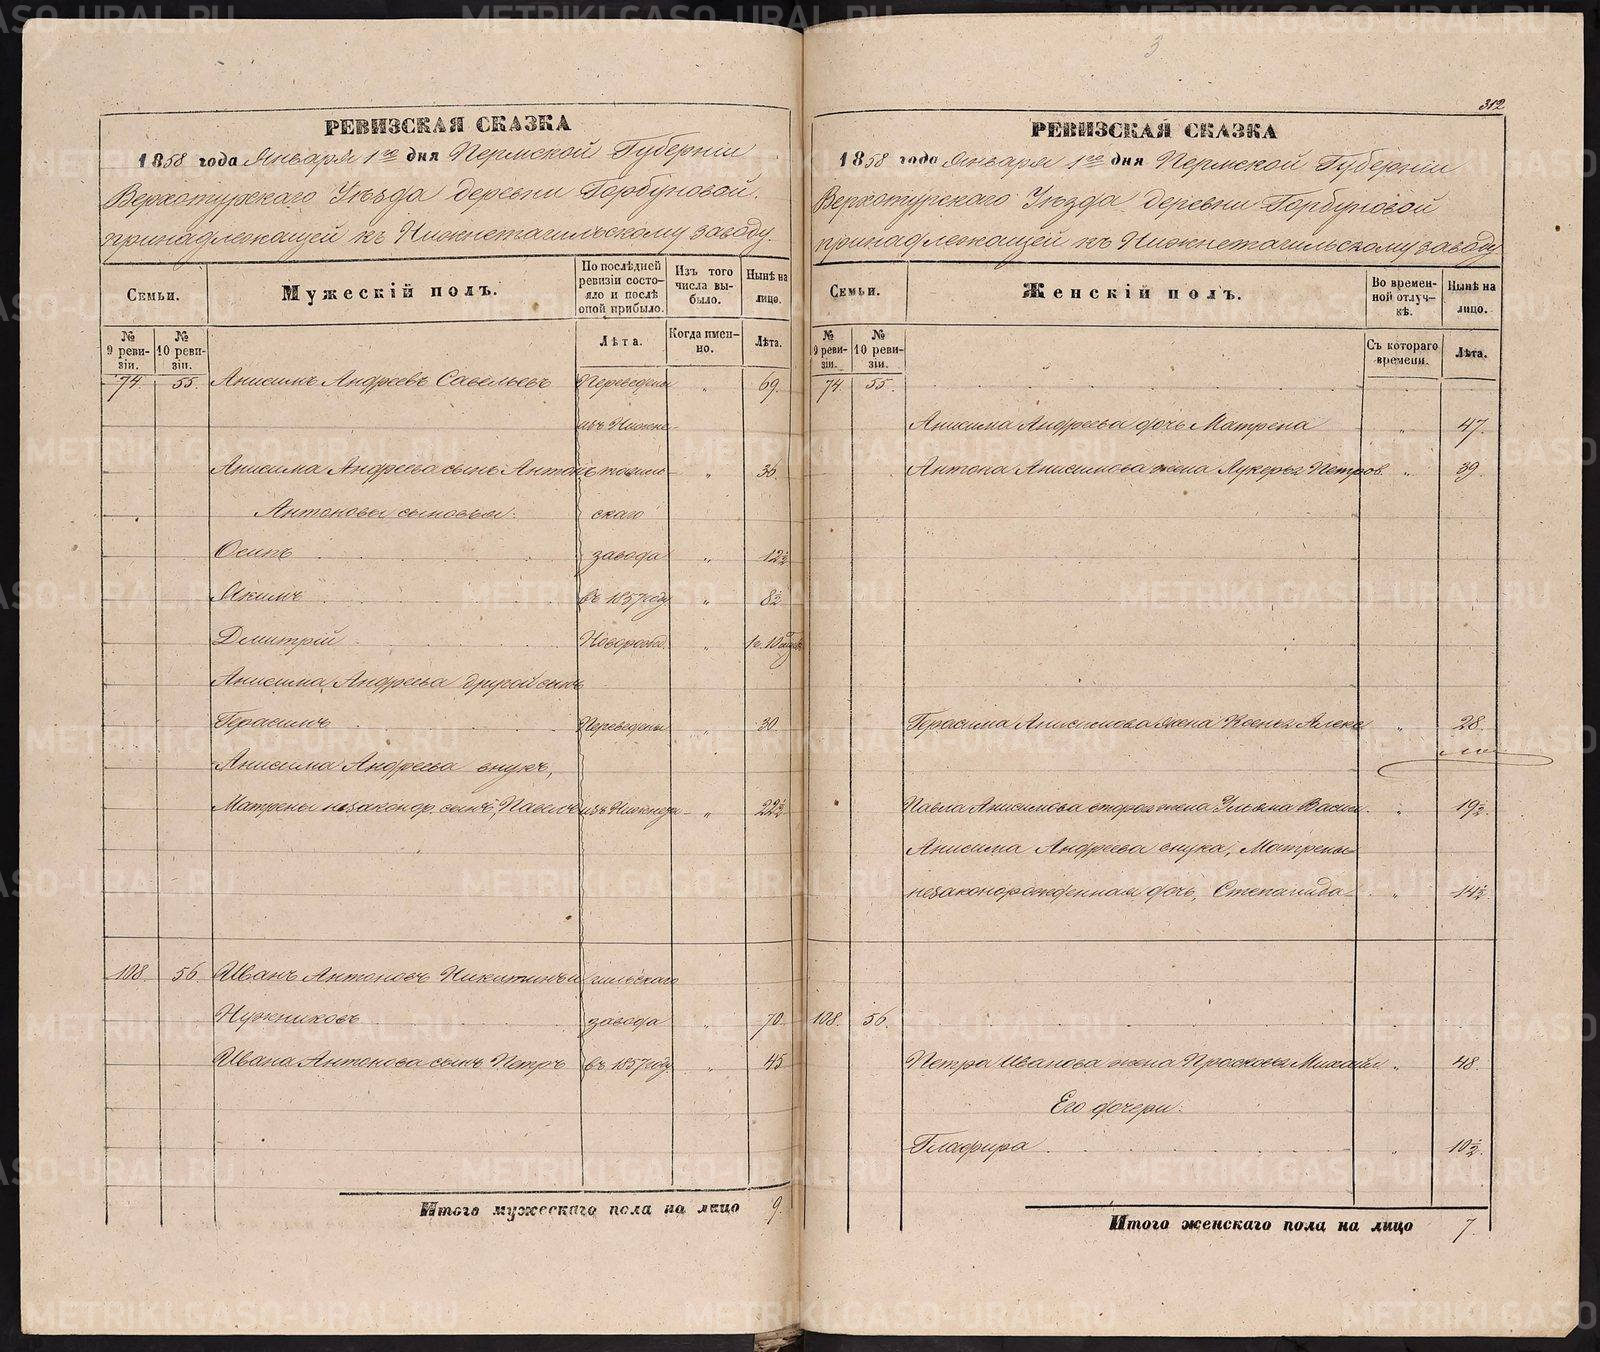 3
РЕВИЗСКАЯ СКАЗКА
1858 года Января 1го дня Пермской Губерніи
Верхотурскаго Уѣзда деревни Горбуновой.
принадлежащей къ Нижнетагильскому заводу.
Семьи.
Мужескій полъ.
По послѣдней ревизіи состояло и послѣ оной прибыло.
Изъ того числа выбыло.
Нынѣ на лицо.
№ 9 ревизіи.
№ 10 ревизіи.
Лѣта.
Когда именно.
Лѣта.
74. 55. Анисимъ Андреевъ Савельевъ Переведены " 69.
изъ Нижне-
Анисима Андреева сынъ Антонъ тагиль- " 36.
Антоновы сыновья: скаго
Осипъ завода " 12½
Якимъ въ 1857 году " 8½
Дмитрій Новорожд. "
Анисима Андреева другой сынъ
Герасимъ Переведены " 30
Анисима Андреева внукъ,
Матрены незаконор. сынъ, Павелъ изъ Нижнета- " 22½
108. 56. Иванъ Антоновъ Никитинъ и гильскаго
Нужниковъ завода " 70.
Ивана Антонова сынъ Петръ въ 1857 году " 45
Итого мужескаго пола на лицо 9.
312
РЕВИЗСКАЯ СКАЗКА
1858 года Января 1го дня Пермской Губерніи
Верхотурскаго Уѣзда деревни Горбуновой
принадлежащей къ Нижнетагильскому заводу
Семьи.
Женскій полъ.
Во временной отлучкѣ.
Нынѣ на лицо.
№ 9 ревизіи.
№ 10 ревизіи.
Съ котораго времени.
Лѣта.
74. 55.
Анисима Андреева дочь Матрена " 47.
Антона Анисимова жена Лукерья Петров. " 39.
Герасима Анисимова жена Ксенья Алекс " 28.
Павла Анисимова вторая жена Ульяна Васил. " 19½
Анисима Андреева внука, Матрены
незаконорожденная дочь, Степанида " 14½
108. 56.
Петра Иванова жена Прасковья Михайл. " 48.
Его дочери:
Глафира " 10½
Итого женскаго пола на лицо 7.
METRIKI.GASO-URAL.RU